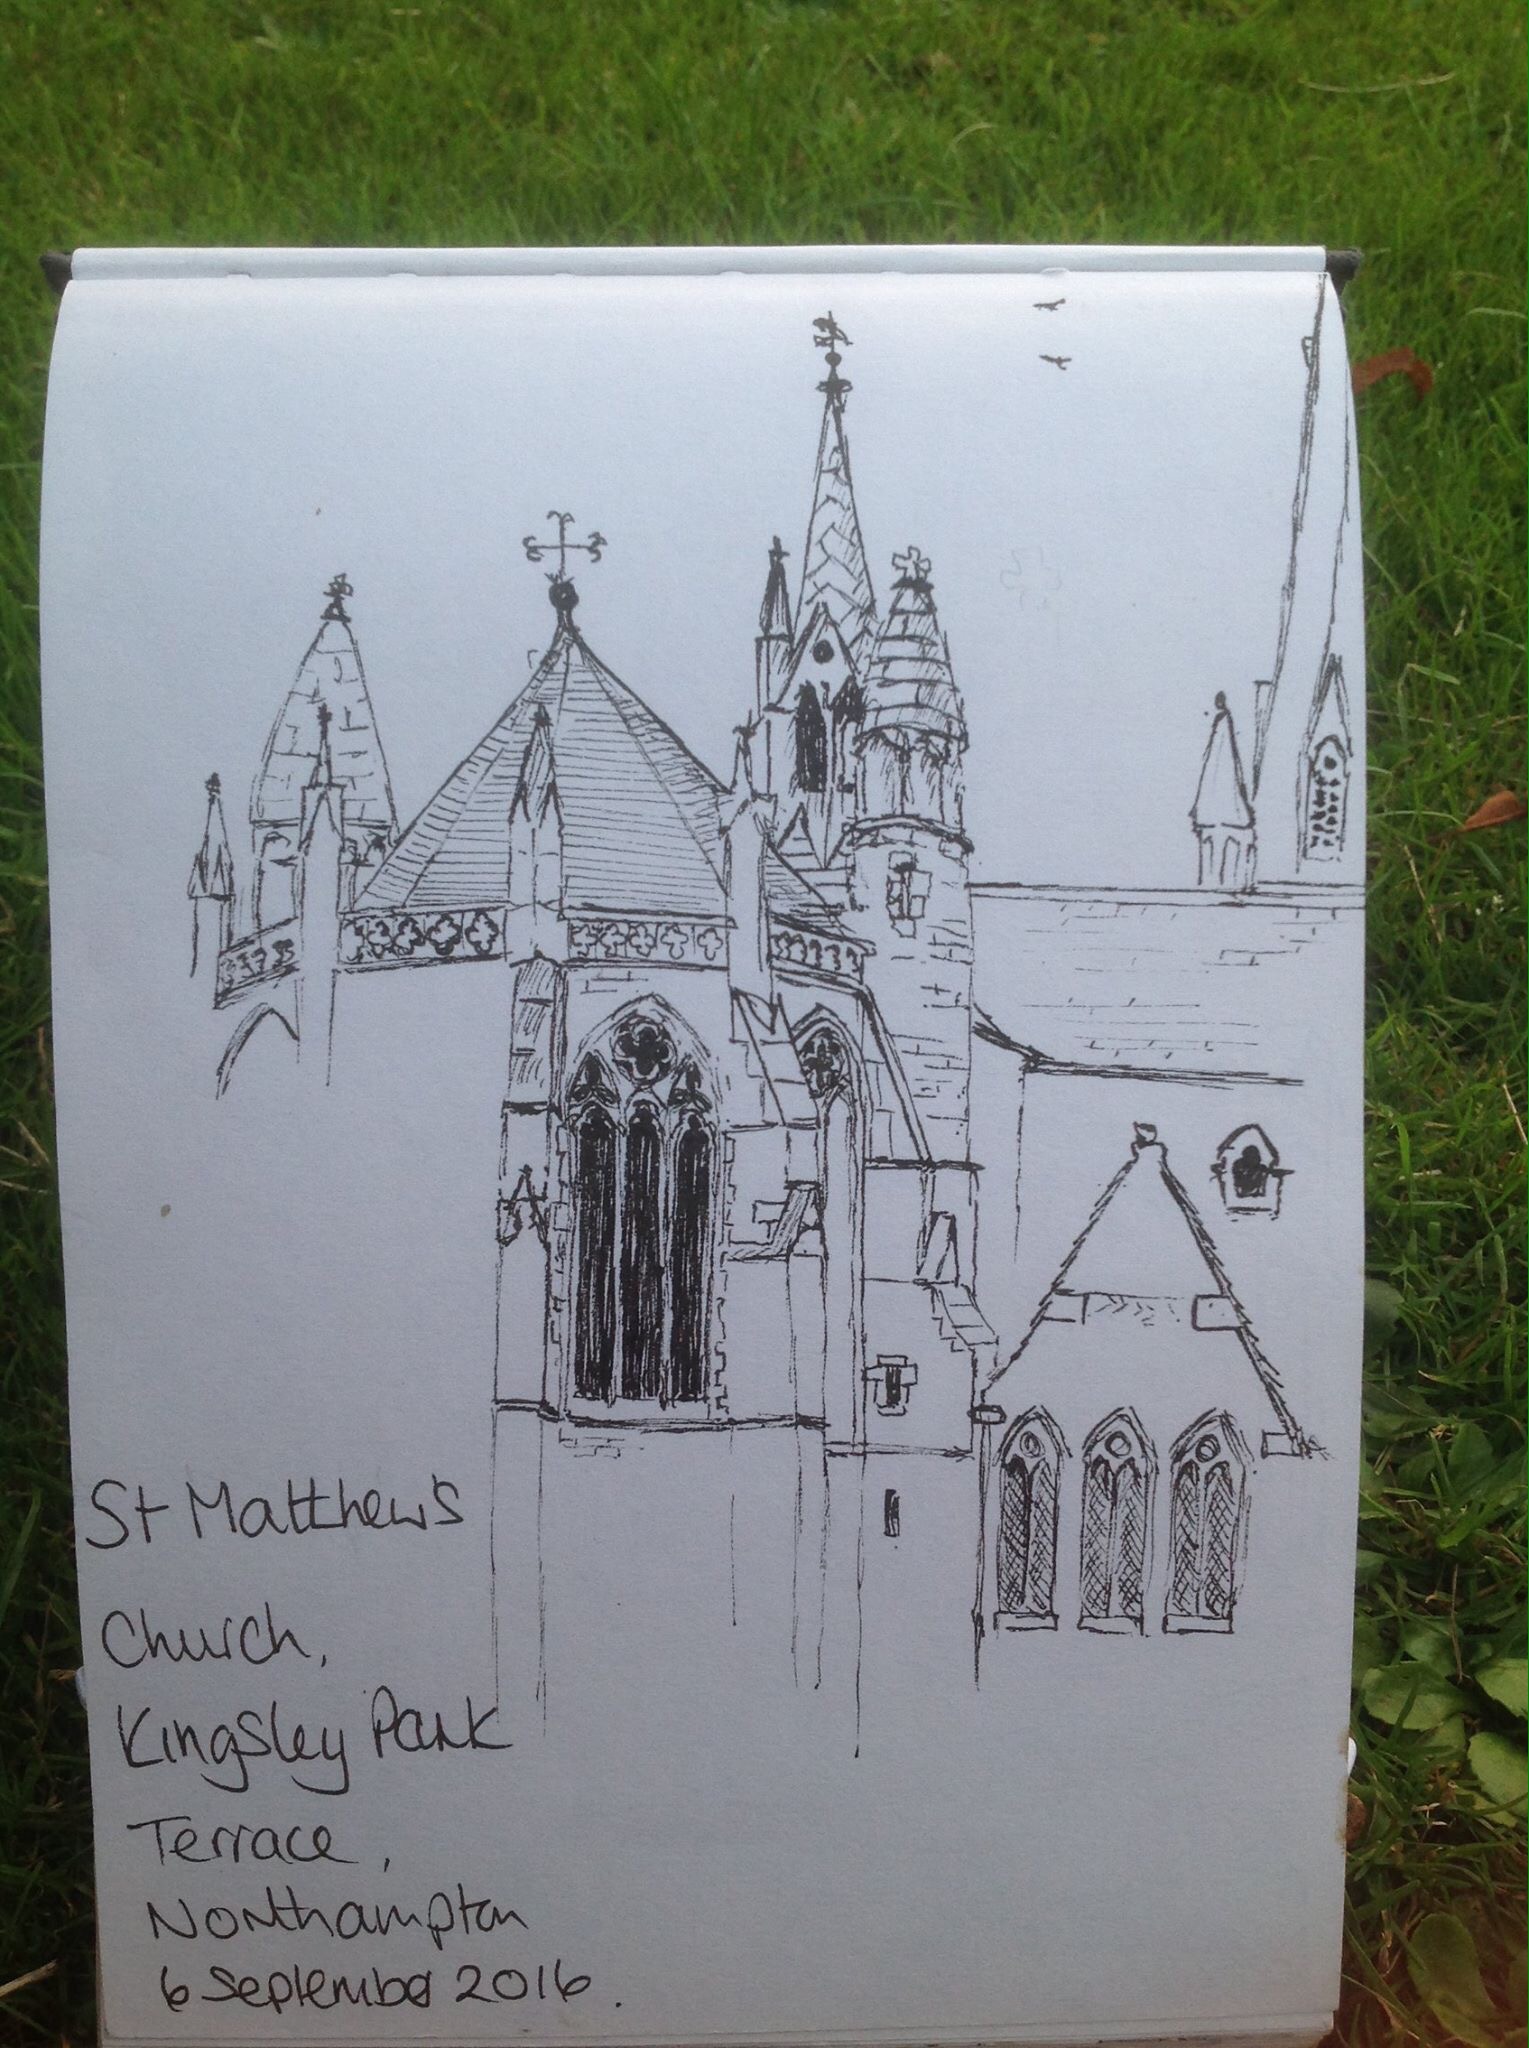 St Matthew's
Church,
Kingsley Park
Terrace,
Northampton
6 September 2016.